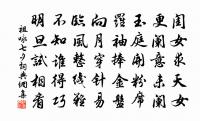 閨女求天女
更闌意未闌
玉庭開粉席
羅袖捧金盤
向月穿針易
臨風整線難
不知誰得巧
明旦試相看
祖詠七夕詞典網書